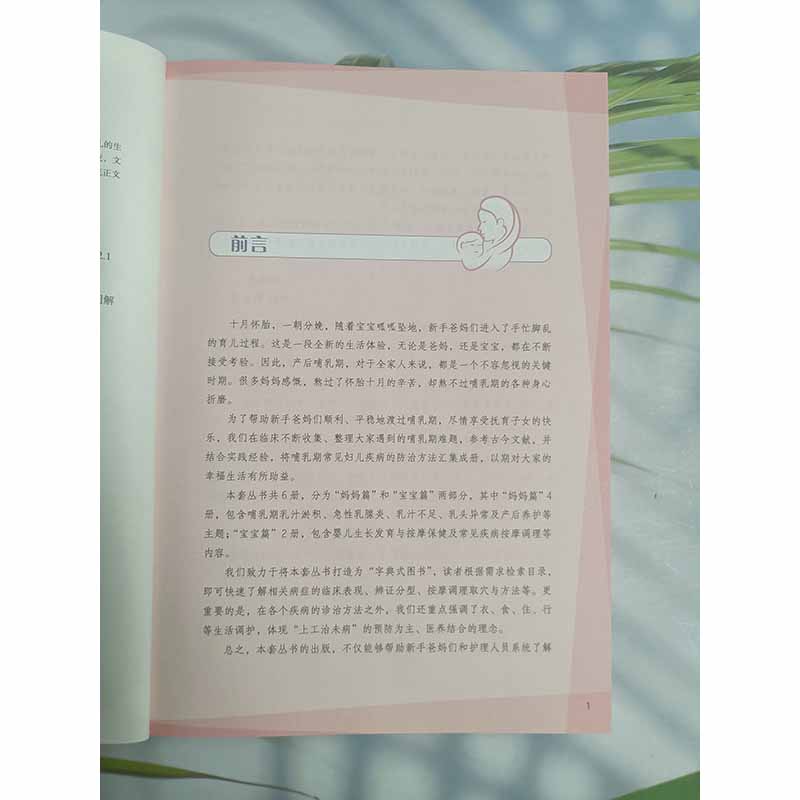 的生
文
正文
2.1
图解
前言
十月怀胎，一朝分娩，随着宝宝呱呱坠地，新手爸妈们进入了手忙脚乱
的育儿过程。这是一段全新的生活体验，无论是爸妈，还是宝宝，都在不断
接受考验。因此，产后哺乳期，对于全家人来说，都是一个不容忽视的关键
时期。很多妈妈感慨，熬过了怀胎十月的辛苦，却熬不过哺乳期的各种身心
折磨。
为了帮助新手爸妈们顺利、平稳地渡过哺乳期，尽情享受抚育子女的快
乐，我们在临床不断收集、整理大家遇到的哺乳期难题，参考古今文献，并
结合实践经验，将哺乳期常见妇儿疾病的防治方法汇集成册，以期对大家的
幸福生活有所助益。
本套丛书共6册，分为“妈妈篇”和“宝宝篇”两部分，其中“妈妈篇”4
册，包含哺乳期乳汁淤积、急性乳腺炎、乳汁不足、乳头异常及产后养护等
主题；“宝宝篇”2册，包含婴儿生长发育与按摩保健及常见疾病按摩调理等
内容。
我们致力于将本套丛书打造为“字典式图书”，读者根据需求检索目录，
即可快速了解相关病症的临床表现、辨证分型、按摩调理取穴与方法等。更
重要的是，在各个疾病的诊治方法之外，我们还重点强调了衣、食、住、行
等生活调护，体现“上工治未病”的预防为主、医养结合的理念。
总之，本套丛书的出版，不仅能够帮助新手爸妈们和护理人员系统了解
1